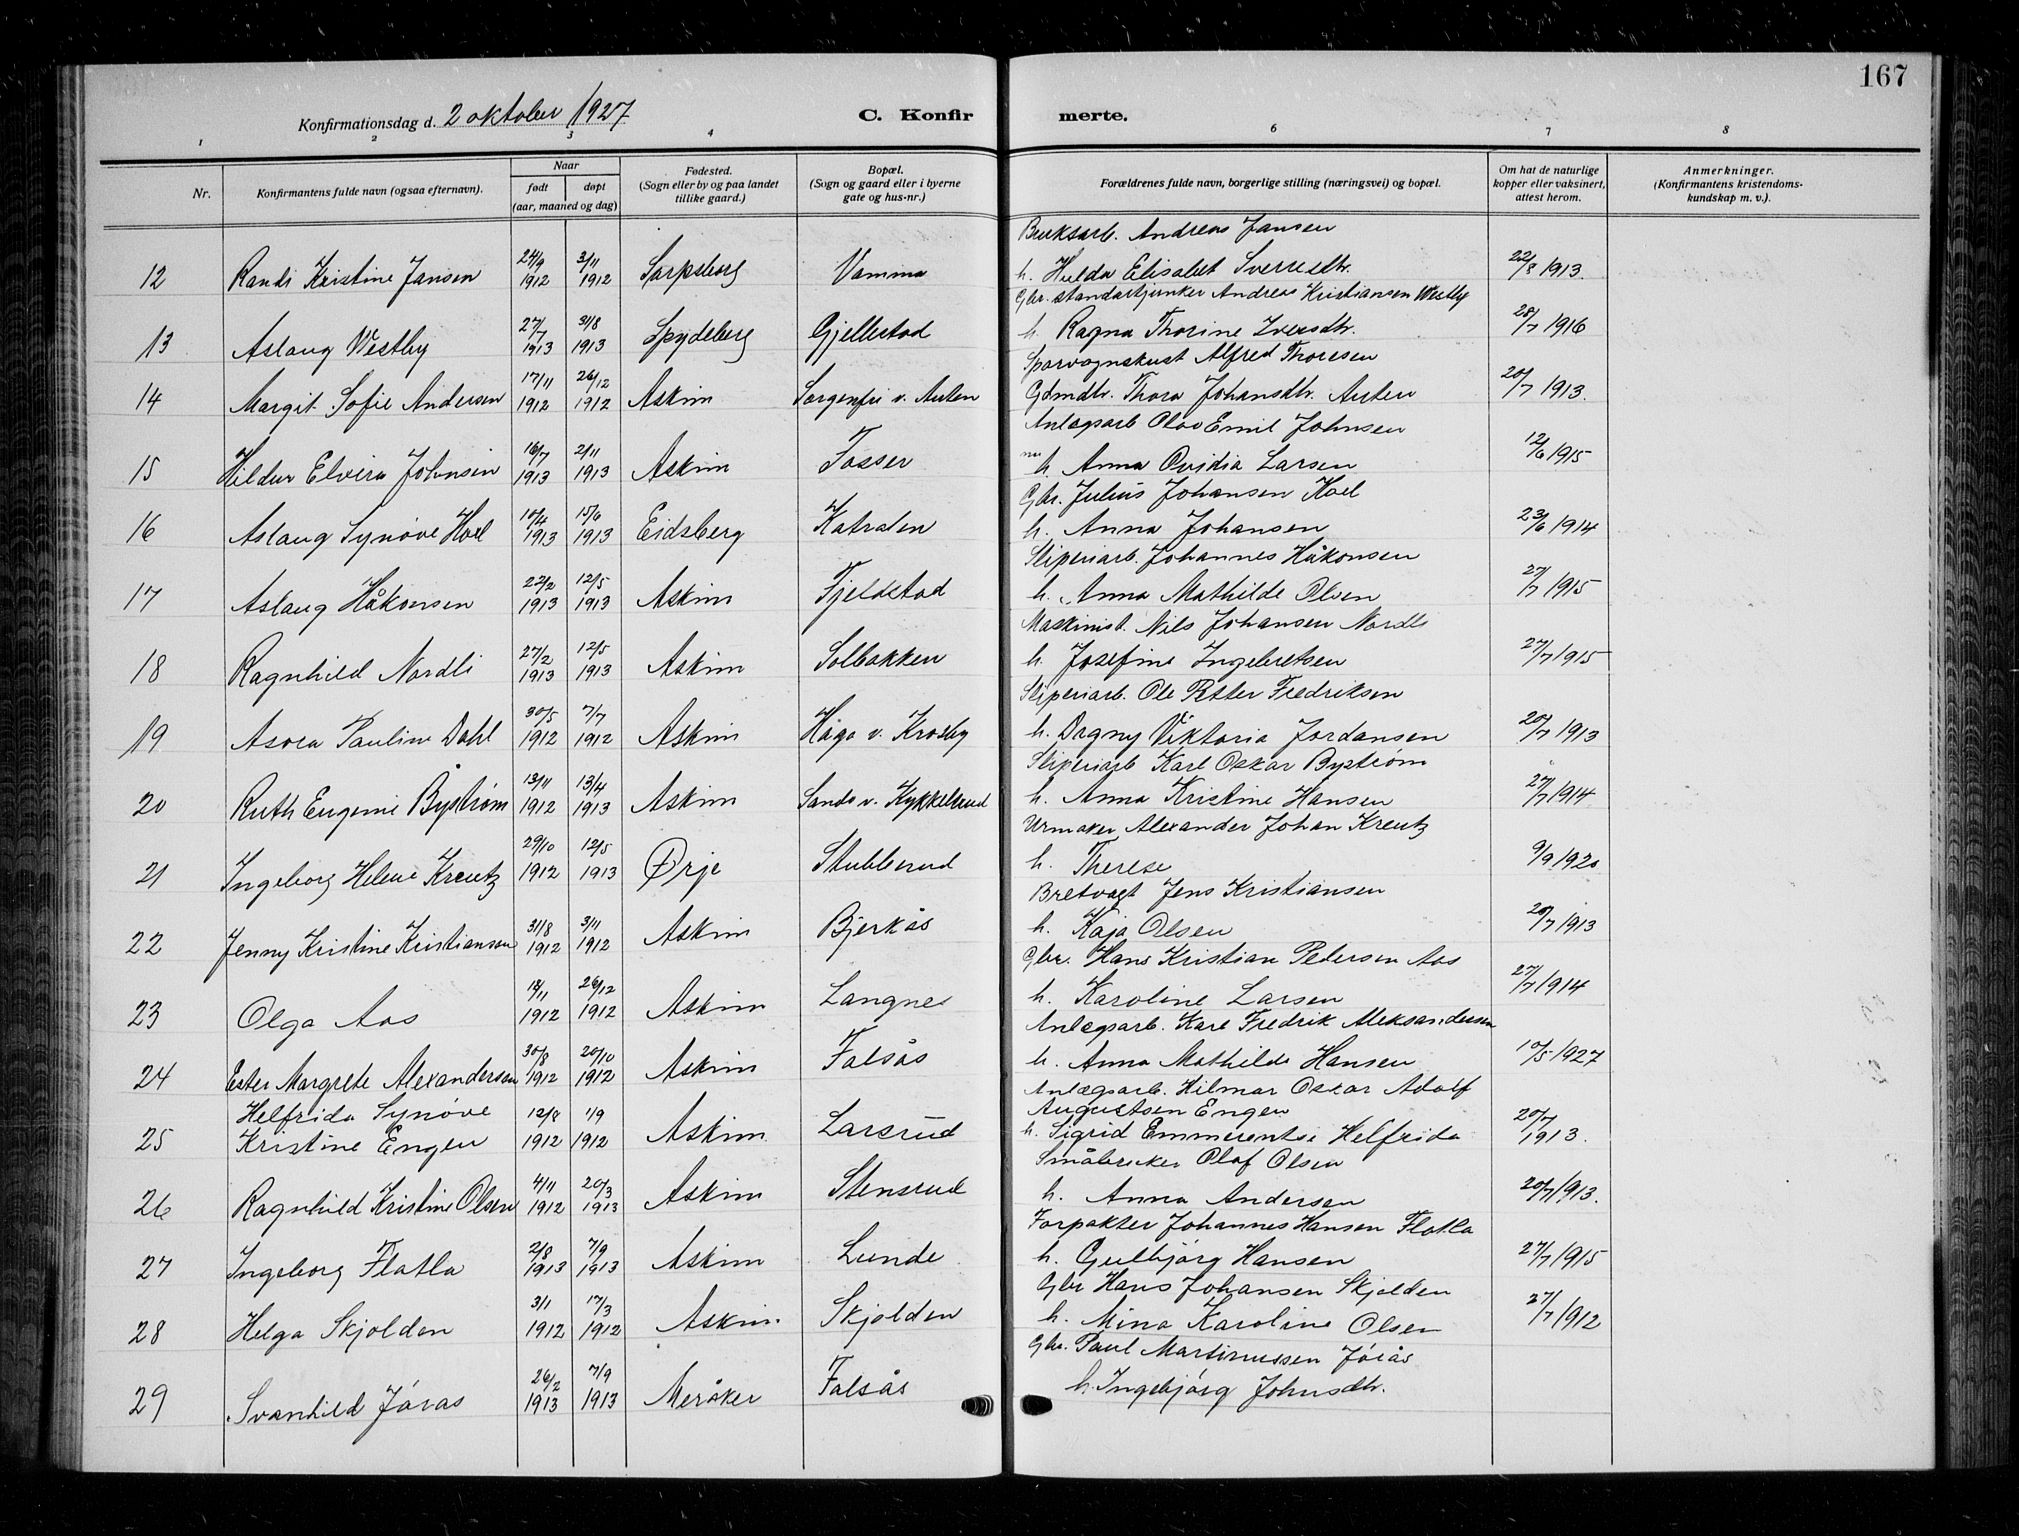 167
Konfirmationsdag d. 2 oktober 1927 C. Konfirmerte.
1 2 3 4 6 7 8
Nr. Konfirmantens fulde navn (ogsaa efternavn). Naar født døpt (aar, maaned og dag) Fødested. (Sogn eller by og paa landet tillike gaard.) Bopæl. (Sogn og gaard eller i byerne gate og hus-nr.) Forældrenes fulde navn, borgerlige stilling (næringsvei) og bopæl. Om hat de naturlige kopper eller vaksinert, attest herom. Anmerkninger. (Konfirmantens kristendoms-kundskap m. v.).
Bruksarb. Andreas Jansen
12 Randi Kristine Jansen 24/9 1912 3/11 1912 Sarpsborg Vamma h. Hilda Elisabet Sverresdtr. 22/8 1913.
Gbr. standartjunker Andreas Kristiansen Westby
13 Aslaug Westby 27/7 1913 31/8 1913 Spydeberg Gjellestad h. Ragna Thorine Iversdtr. 28/7 1916
Sporvognskusk Alfred Thoresen
14 Margit Sofie Andersen 17/11 1912 26/12 1912 Askim Sorgenfri v. Auten Gdmdtr. Thora Johansdtr. Auten 20/7 1913.
Anlægsarb Olav Emil Johnsen
15 Hildur Elvira Johnsen 16/7 1913 2/11 1913 Askim Fosser h. Anna Ovidia Larsen 12/6 1915
Gbr. Julius Johansen Hoel
16 Aslaug Synøve Hoel 10/4 1913 15/6 1913 Eidsberg Katralen h. Anna Johansen 23/6 1914
Sliperiarb. Johannes Håkonsen
17 Aslaug Håkonsen 22/2 1913 12/5 1913 Askim Fjeldstad h. Anna Mathilde Olsen 27/7 1915
Maskinist. Nils Johansen Nordli
18 Ragnhild Nordli 27/2 1913 12/5 1913 Askim Solbakken h. Josefine Ingebretsen 27/7 1915
Sliperiarb. Ole Petter Fredriksen
19 Asora Pauline Dahl 30/5 1912 7/7 1912 Askim Håga v. Krosby h. Dagny Viktoria Jordansen 20/7 1913
Sliperiarb Karl Oskar Bystrøm
20 Ruth Eugenie Bystrøm 13/11 1912 13/4 1913 Askim Sando v. Kykkelsrud h. Anna Kristine Hansen 27/7 1914
Urmaker Alexander Johan Kreutz
21 Ingeborg Helene Kreutz 29/10 1912 12/5 1913 Ørje Stubberud h. Therese 9/9 1920
Bretvagt Jens Kristiansen
22 Jenny Kristine Kristiansen 31/8 1912 3/11 1912 Askim Bjerkås h. Kaja Olsen 20/7 1913
Gbr. Hans Kristian Pedersen Aas
23 Olga Aas 18/11 1912 26/12 1912 Askim Langnes h. Karoline Larsen 27/7 1914
Anlægsarb. Karl Fredrik Aleksandersen
24 Ester Margrete Alexandersen 30/8 1912 20/10 1912 Askim Falsås h. Anna Mathilde Hansen 10/5 1927
Anlægsarb. Hilmar Oskar Adolf
Helfrida Synøve 12/8 1/9 Augustsen Engen 20/7
25 Kristine Engen 1912 1912 Askim Larsrud h. Sigrid Emmerentse Helfrida 1913.
Småbruker Olaf Olsen
26 Ragnhild Kristine Olsen 4/11 1912 20/3 1913 Askim Stensrud h. Anna Andersen 20/7 1913.
Forpakter Johannes Hansen Flatla
27 Ingeborg Flatla 2/8 1913 7/9 1913 Askim Lunde h. Gulbjörg Hansen 27/7 1915
Gbr Hans Johansen Skjolden
28 Helga Skjolden 3/1 1912 17/3 1912 Askim. Skjolden h. Mina Karoline Olsen 27/7 1912
Gbr. Paul Martinussen Jórås
29 Svanhild Jóras 26/2 1913 7/9 1913 Meråker Falsås h. Ingebjörg Johnsdtr.